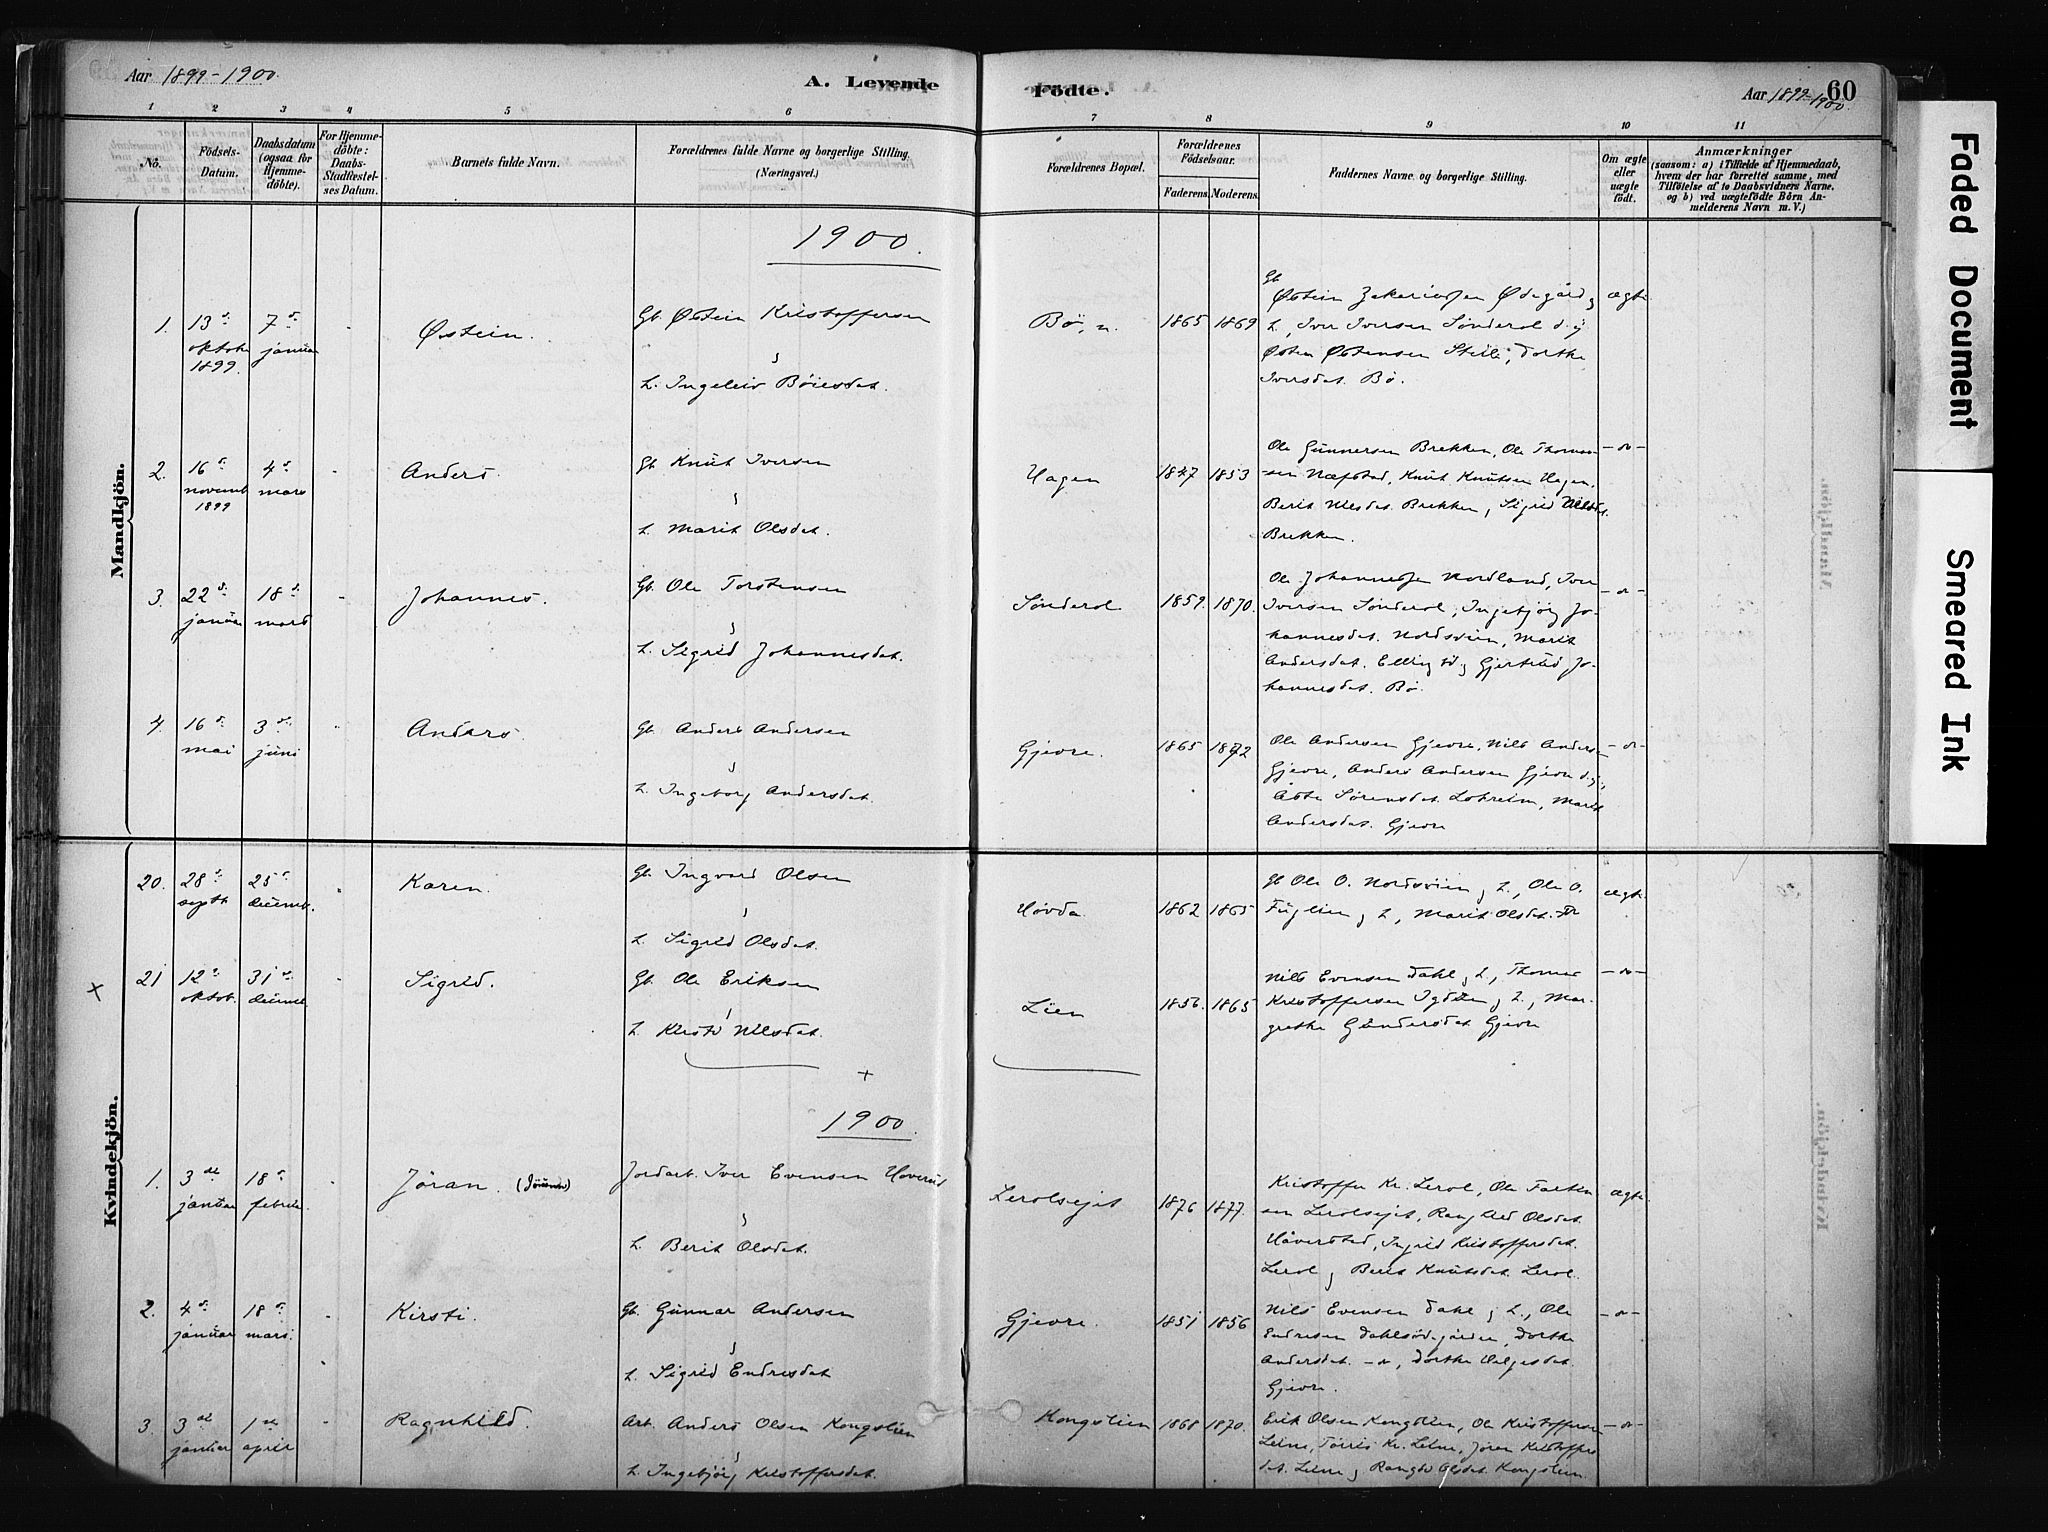 Aar 1899-1900.
A. Levende
Födte.
Aar 1899-1900.
60
1 2 3 4 5 6 7 8 9 10 11
No.
Födsels-Datum.
Daabsdatum (ogsaa for Hjemme-döbte).
For Hjemme-döbte: Daabs-Stadfæstel-ses Datum.
Barnets fulde Navn.
Forældrenes fulde Navne og borgerlige Stilling. (Næringsvei.)
Forældrenes Bopæl.
Forældrenes Födselsaar.
Faderens. Moderens.
Faddernes Navne og borgerlige Stilling.
Om ægte eller uægte födt.
Anmærkninger
(saasom: a) i Tilfælde af Hjemmedaab, hvem der har forrettet samme, med Tilföielse af to Daabsvidners Navne, og b) ved uægtefödte Börn Anmelderens Navn m. V.)
Mandkjön.
1900.
1. 13de oktober 1899. 7de januar Østein. Gb. Østein Kristoffersen
h. Ingeleiv Böiesdat.
Bø, n. 1865 1869
Gb
Østein Zakeriasen Ødegård og
h., Iver Iversen Sønderol d.y
Østen Østensen Steile, Dorthe
Iversdat. Bø.
ægte
2. 16de novemb 1899 4de mars Anders. Gb. Knut Iversen
h. Marit Olsdat.
Hagen 1847 1853
Ole Gunnersen Brekken, Ole Thomas-
sen Næfstad, Knut Knutsen Hagen,
Berit Nilsdat. Brekken, Sigrid Nilsdat.
Brekken.
-do-
3. 22de januar 18de mars Johannes. Gb. Ole Torstensen
h. Sigrid Johannesdat.
Sønderol 1859. 1870.
Ole Johannessen Nordland, Iver
Iversen Sønderol, Ingebjørg Jo-
hannesdat. Nordsvien, Marit
Andersdat. Ellingbø og Gjertrud Jo-
hannesdat. Bø.
-do-
4. 16de mai 3de juni Anders. Gb. Anders Andersen
h. Ingeborg Andersdat.
Gjevre. 1865 1872
Ole Andersen Gjevre, Nils Anders.
Gjevre, Anders Andersen Gjevre d.y.,
Åste Sørensdat. Lohrelm, Marit
Andersdat. Gjevre
-do-
Kvindekjön.
20. 28de septb 25de decemb. Karen. Gb. Ingvard Olsen
h. Sigrid Olsdat.
Høvda 1862 1865
Gb Ole O. Nordsvien og h., Ole O.
Fuglien og h., Marit Olsdat.
ægte
21 12te oktob. 31te decemb. Sigrid. Gb. Ole Eriksen
h. Kirsti Nilsdat.
Lien 1856. 1865
Nils Evensen Dahl og h., Thomas
Kristoffersen Igdlen og h., Mar-
grethe Gundersdat Gjevre
-do-
1900.
1. 3de januar 18de februar Jøran. Jordarb. Iver Evensen Haverud
h. Berit Olsdat.
Lerolsejet 1876 1877.
Kristoffer Kr. Lerol, Ole Falken-
sen Lerolsejet, Rangdid Olsdat.
Håverstad, Ingrid Kristoffersdat.
Lerol og Berit Knutsdat. Lerol.
ægte.
2. 4de januar 18de mars. Kirsti. Gb. Gunnar Andersen
h. Sigrid Endresdat
Gjevre. 1851 1856
Nils Evensen Dahl og h., Ole
Endresen Dahlsødegården, Dorthe
Andersdat. -do-, Dorthe Helgesdat.
Gjevre.
-do-
3. 3de januar 1ste april Ragnhild. Arb. Anders Olsen Kongslien
h. Ingebjørg Kristoffersdat.
Kongslien 1868 1870.
Erik Olsen Kongslien, Ole Kristoffersen
Leine, Tørris Kr. Leine, Jøran Kristoffers-
dat. Leine og Rangdi Olsdat. Kongslien.
-do-
Faded Document
Smeared Ink